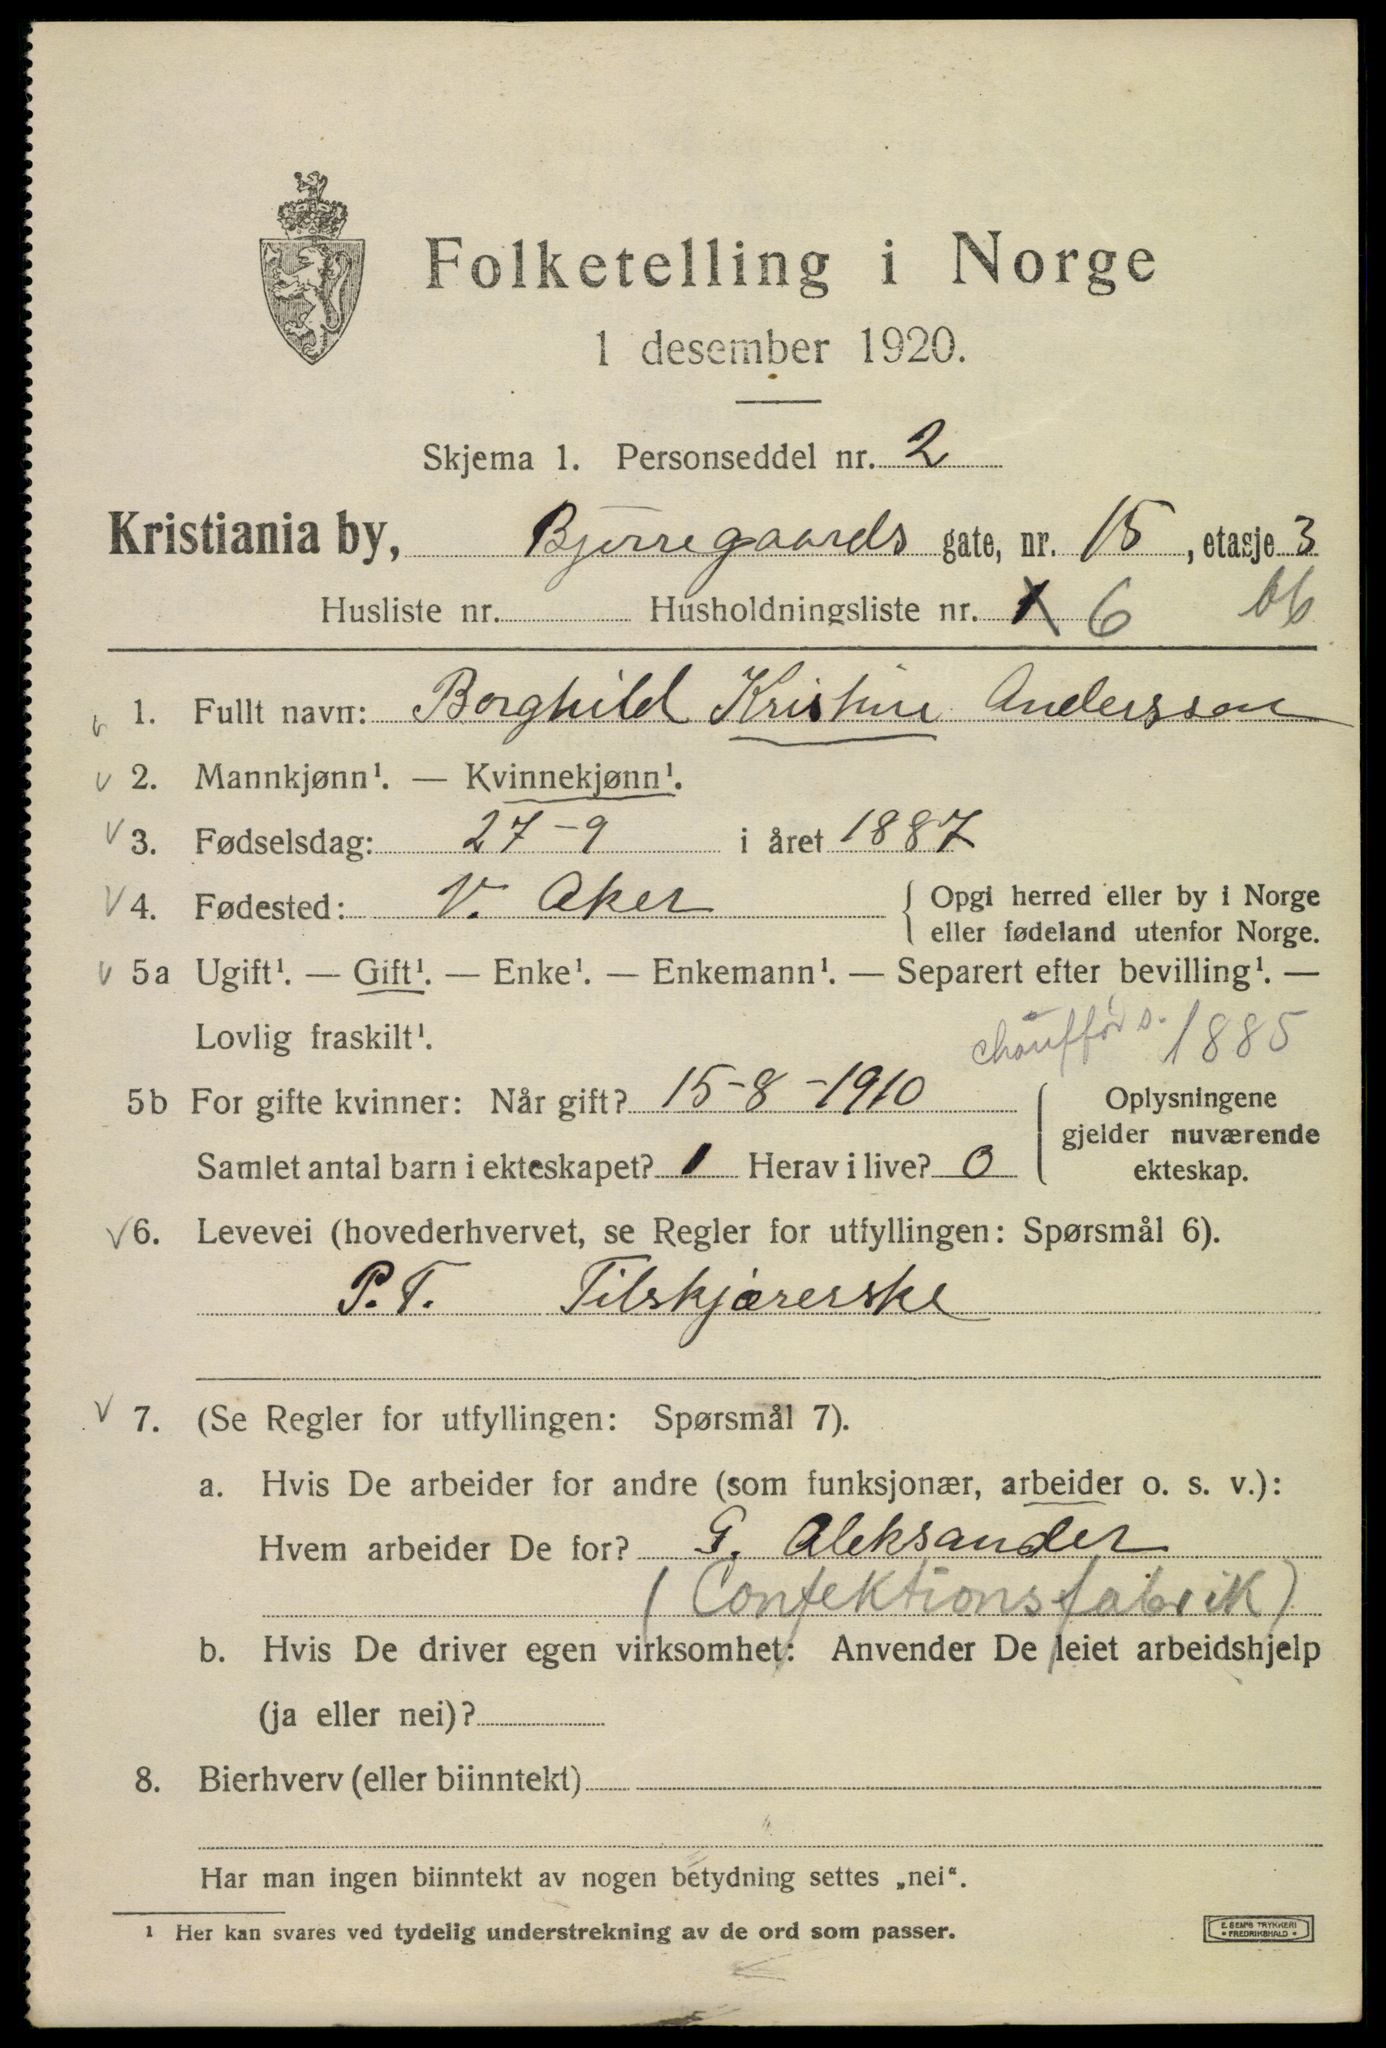 Folketelling i Norge
1 desember 1920.
Skjema 1. Personseddel nr. 2
Kristiania by, Bjerregaards gate, nr. 15, etasje 3
Husliste nr. Husholdningsliste nr. 1 6 bb
1. Fullt navn: Borghild Kristine Andersson
2. Mannkjønn¹. — Kvinnekjønn¹.
3. Fødselsdag: 27-9 i året 1887
4. Fødested: V. Aker { Opgi herred eller by i Norge
eller fødeland utenfor Norge.
5a Ugift¹. — Gift¹. — Enke¹. — Enkemann¹. — Separert efter bevilling¹. —
Lovlig fraskilt¹. chauffør s. 1885
5b For gifte kvinner: Når gift? 15-8-1910 { Oplysningene
gjelder nuværende
Samlet antal barn i ekteskapet? 1 Herav i live? 0 ekteskap.
6. Levevei (hovederhvervet, se Regler for utfyllingen: Spørsmål 6).
P.T. Tilskjærerske
7. (Se Regler for utfyllingen: Spørsmål 7).
a. Hvis De arbeider for andre (som funksjonær, arbeider o. s. v.):
Hvem arbeider De for? G. Aleksander
(Confektionsfabrik)
b. Hvis De driver egen virksomhet: Anvender De leiet arbeidshjelp
(ja eller nei)?
8. Bierhverv (eller biinntekt) —
Har man ingen biinntekt av nogen betydning settes „nei“.
¹ Her kan svares ved tydelig understrekning av de ord som passer.
E. SEM'S TRYKKERI
• FREDRIKSHALD •